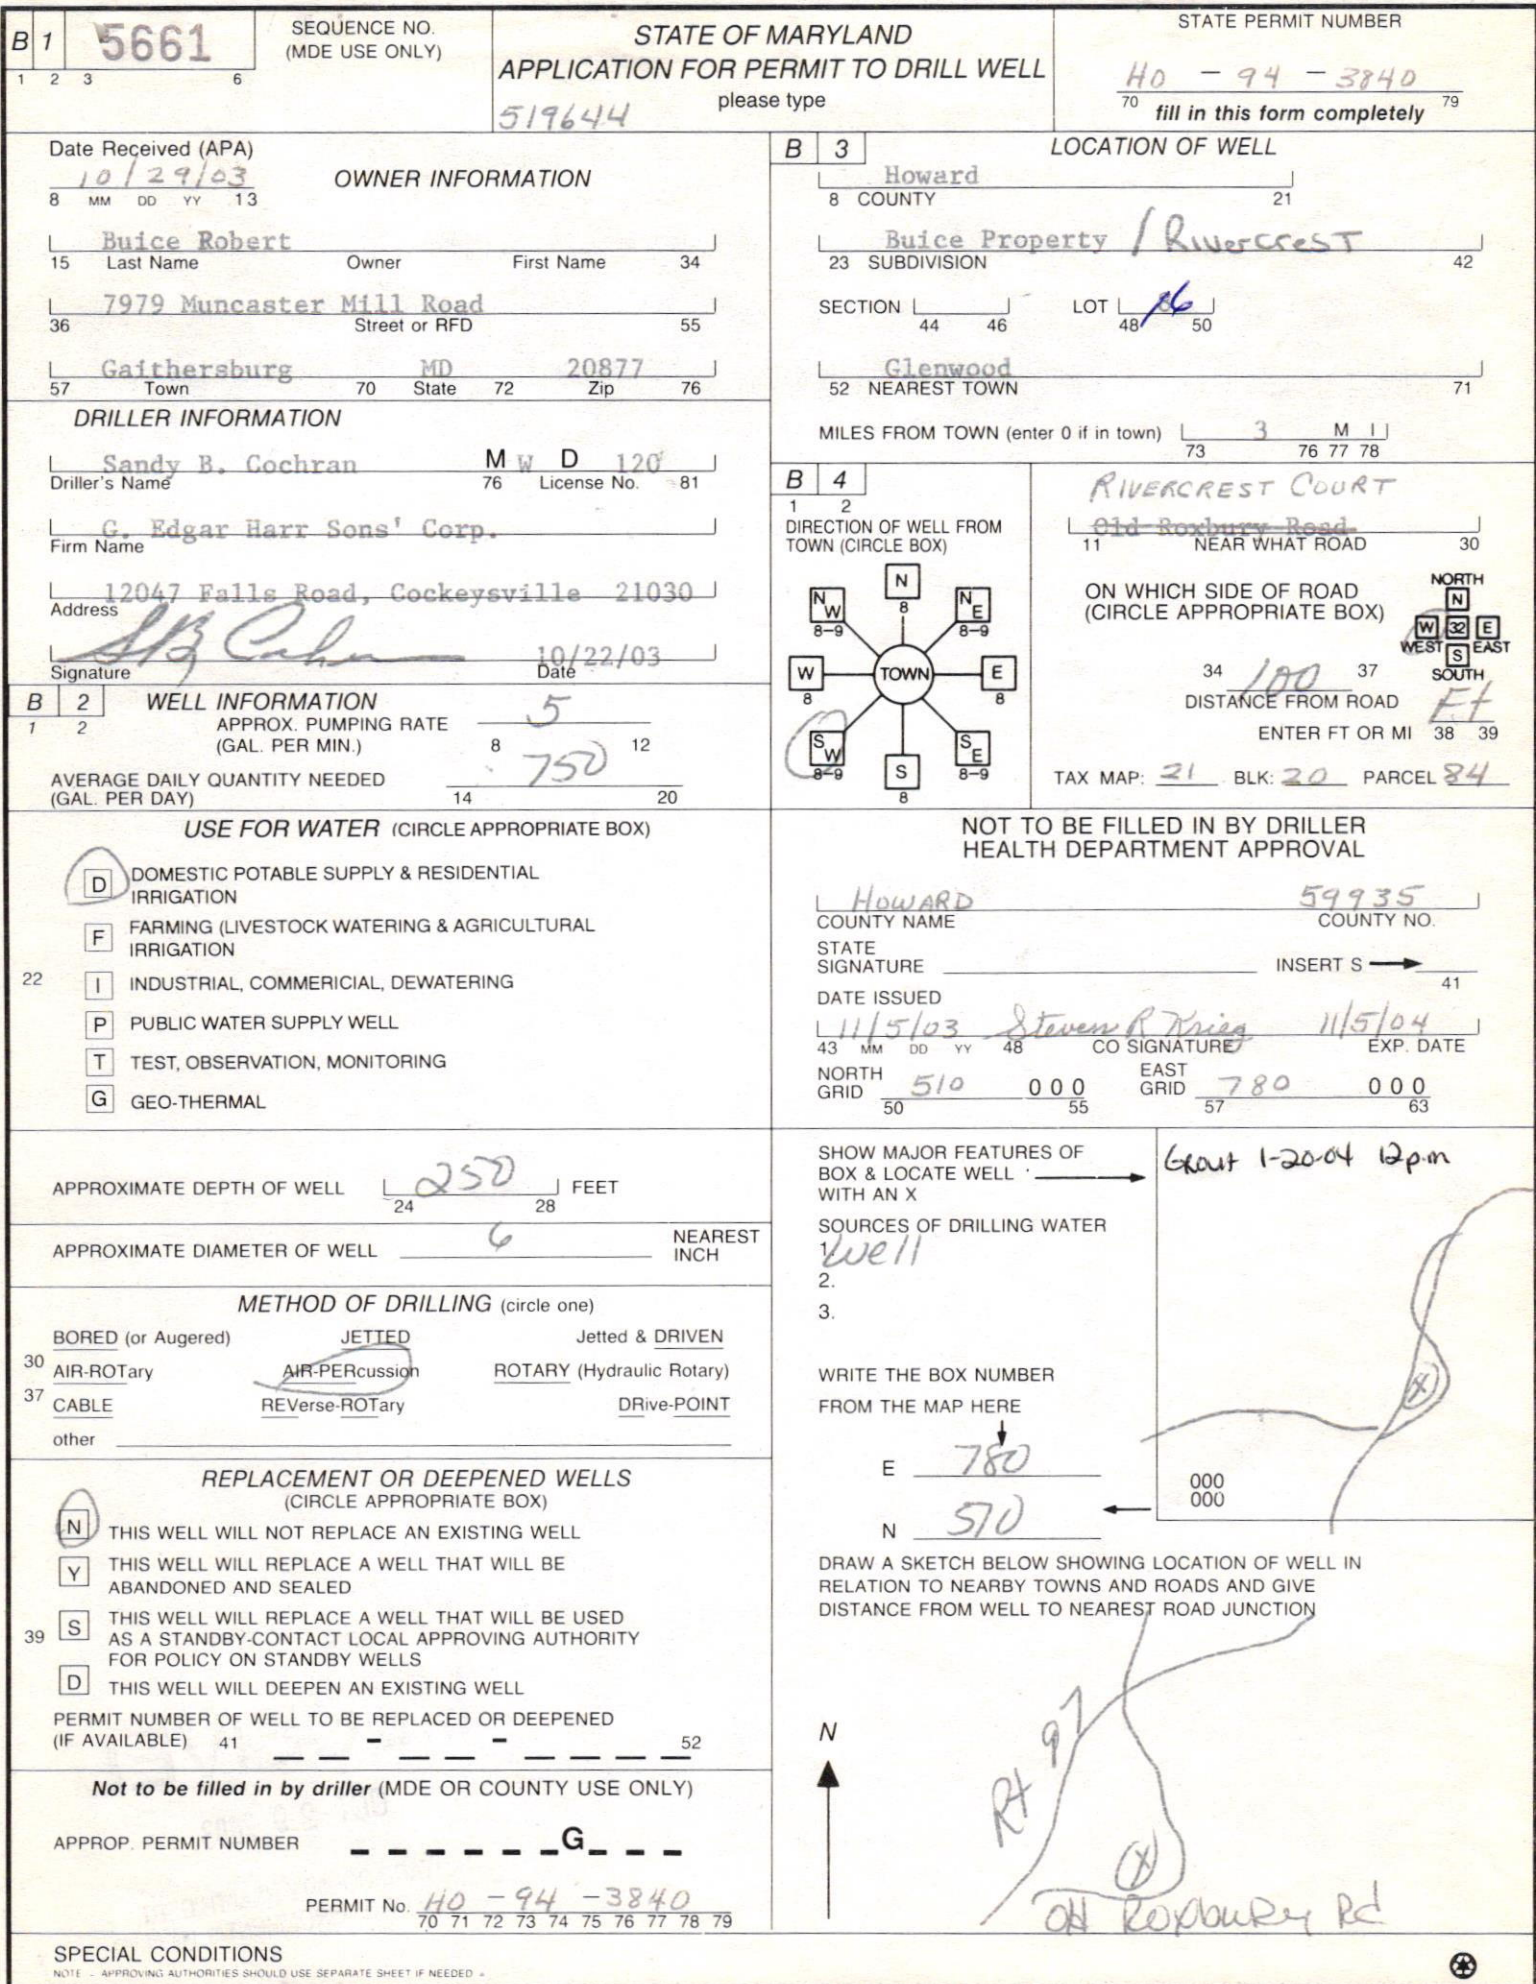 B 1 5661
1 2 3 6
SEQUENCE NO.
(MDE USE ONLY)
STATE OF MARYLAND
APPLICATION FOR PERMIT TO DRILL WELL
please type
519644
STATE PERMIT NUMBER
HO - 94 - 3840
70 79
fill in this form completely
Date Received (APA)
10/29/03
8 MM DD YY 13
OWNER INFORMATION
Buice Robert
15 Last Name Owner First Name 34
7979 Muncaster Mill Road
36 Street or RFD 55
Gaithersburg MD 20877
57 Town 70 State 72 Zip 76
DRILLER INFORMATION
Sandy B. Cochran M W D 120
Driller's Name 76 License No. 81
G. Edgar Harr Sons' Corp.
Firm Name
12047 Falls Road, Cockeysville 21030
Address
10/22/03
Signature Date
B 2 WELL INFORMATION
1 2
APPROX. PUMPING RATE 5
(GAL. PER MIN.) 8 12
AVERAGE DAILY QUANTITY NEEDED 750
(GAL. PER DAY) 14 20
USE FOR WATER (CIRCLE APPROPRIATE BOX)
D DOMESTIC POTABLE SUPPLY & RESIDENTIAL
IRRIGATION
F FARMING (LIVESTOCK WATERING & AGRICULTURAL
IRRIGATION
22 I INDUSTRIAL, COMMERICIAL, DEWATERING
P PUBLIC WATER SUPPLY WELL
T TEST, OBSERVATION, MONITORING
G GEO-THERMAL
APPROXIMATE DEPTH OF WELL 250 FEET
24 28
APPROXIMATE DIAMETER OF WELL 6 NEAREST
INCH
METHOD OF DRILLING (circle one)
BORED (or Augered) JETTED Jetted & DRIVEN
30 AIR-ROTary AIR-PERcussion ROTARY (Hydraulic Rotary)
37 CABLE REVerse-ROTary DRive-POINT
other
REPLACEMENT OR DEEPENED WELLS
(CIRCLE APPROPRIATE BOX)
N THIS WELL WILL NOT REPLACE AN EXISTING WELL
Y THIS WELL WILL REPLACE A WELL THAT WILL BE
ABANDONED AND SEALED
39 S THIS WELL WILL REPLACE A WELL THAT WILL BE USED
AS A STANDBY-CONTACT LOCAL APPROVING AUTHORITY
FOR POLICY ON STANDBY WELLS
D THIS WELL WILL DEEPEN AN EXISTING WELL
PERMIT NUMBER OF WELL TO BE REPLACED OR DEEPENED
(IF AVAILABLE) 41 - - 52
Not to be filled in by driller (MDE OR COUNTY USE ONLY)
APPROP. PERMIT NUMBER G
PERMIT No. HO - 94 - 3840
70 71 72 73 74 75 76 77 78 79
SPECIAL CONDITIONS
NOTE - APPROVING AUTHORITIES SHOULD USE SEPARATE SHEET IF NEEDED -
B 3 LOCATION OF WELL
Howard
8 COUNTY 21
Buice Property / Rivercrest
23 SUBDIVISION 42
SECTION LOT 16
44 46 48 50
Glenwood
52 NEAREST TOWN 71
MILES FROM TOWN (enter 0 if in town) 3 M I
73 76 77 78
B 4
1 2
DIRECTION OF WELL FROM
TOWN (CIRCLE BOX)
N
8
NW
8-9
NE
8-9
W
8
TOWN
E
8
SW
8-9
S
8
SE
8-9
RIVERCREST COURT
Old Roxbury Road
11 NEAR WHAT ROAD 30
ON WHICH SIDE OF ROAD
(CIRCLE APPROPRIATE BOX)
NORTH
N
W 32 E
WEST EAST
S
SOUTH
34 100 37
DISTANCE FROM ROAD
Ft
ENTER FT OR MI 38 39
TAX MAP: 21 BLK: 20 PARCEL 84
NOT TO BE FILLED IN BY DRILLER
HEALTH DEPARTMENT APPROVAL
HOWARD 59935
COUNTY NAME COUNTY NO.
STATE
SIGNATURE INSERT S
41
DATE ISSUED
11/5/03 Steven R Krieg 11/5/04
43 MM DD YY 48 CO SIGNATURE EXP. DATE
NORTH
GRID 510 000
50 55
EAST
GRID 780 000
57 63
SHOW MAJOR FEATURES OF
BOX & LOCATE WELL
WITH AN X
Grout 1-20-04 12p.m
SOURCES OF DRILLING WATER
1. Well
2.
3.
WRITE THE BOX NUMBER
FROM THE MAP HERE
E 780
N 510
000
000
X
DRAW A SKETCH BELOW SHOWING LOCATION OF WELL IN
RELATION TO NEARBY TOWNS AND ROADS AND GIVE
DISTANCE FROM WELL TO NEAREST ROAD JUNCTION
N
Rt 97
X
Old Roxbury Rd